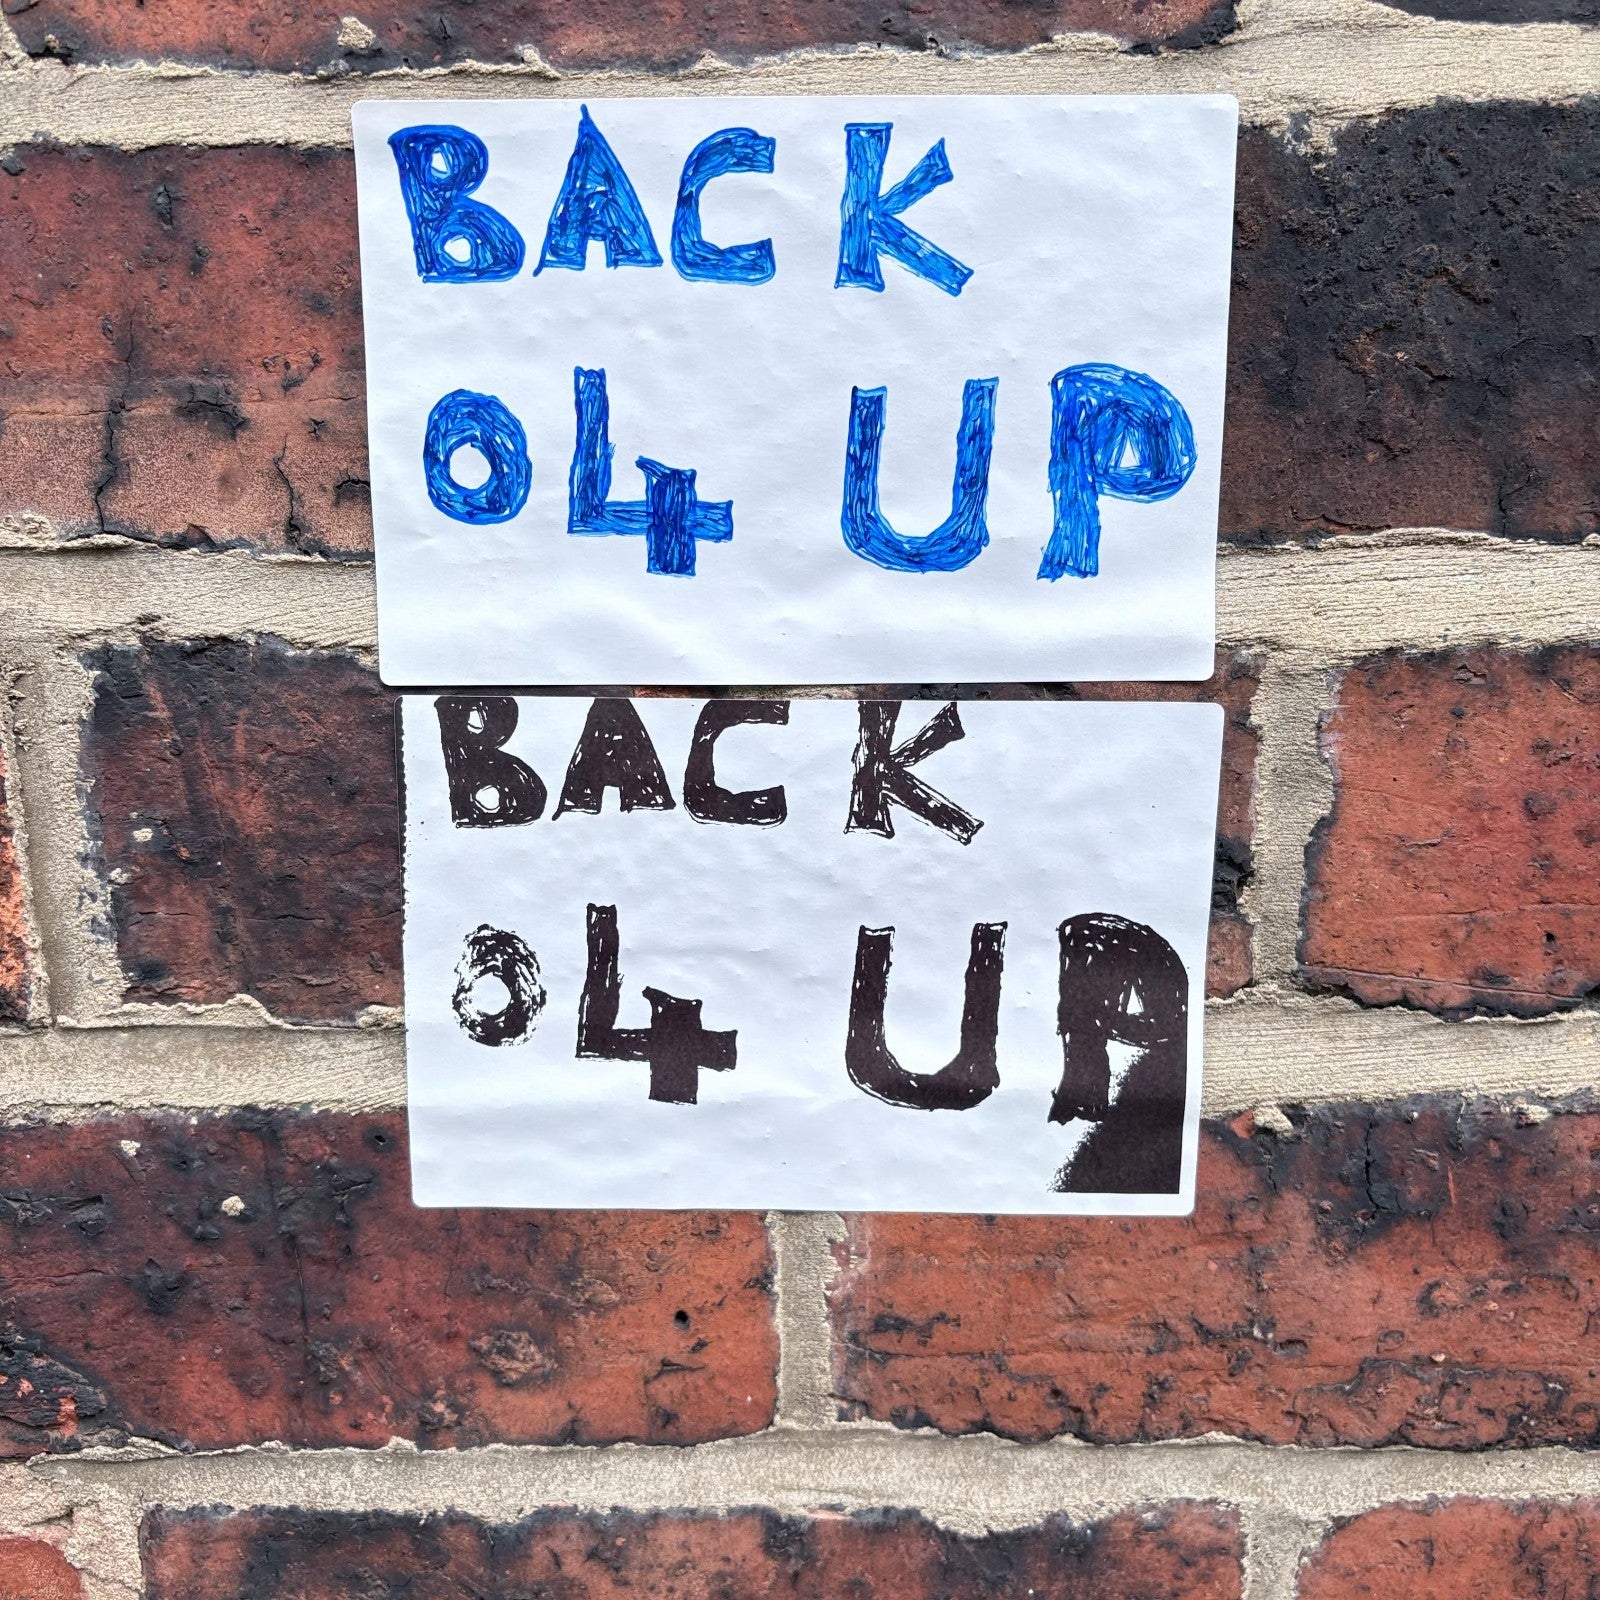 BACK
04 UP
BACK
04 UP